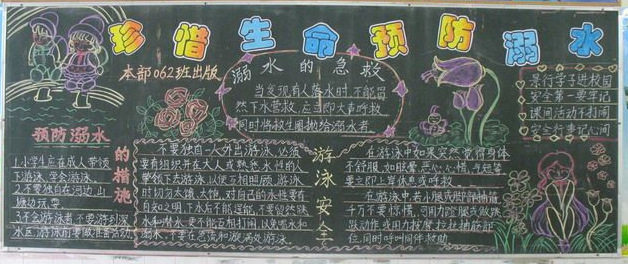 珍惜生命预防溺水
本部062班出版
溺水的急救
当发现有人落水时,不能冒
然下水营救,应立即大声呼救
同时将救生圈抛给溺水者
景行学子进校园
安全第一要牢记
课间活动不打闹
安全行事记心间
预防溺水的措施
1.小学生应在成人带领
下游泳,学会游泳。
2.不要独自在河边、山
塘边玩耍
3.不会游泳者,不要游到深
水区,游泳前要做准备活动
不要独自一人外出游泳,必须
要有组织并在大人或熟悉水性的人
带领下去游泳,以便互相照顾,游泳
时切勿太饿、太饱,对自己的水性要有
自知之明,下水后不能逞能,不要贸然跳
水和潜水,更不能互相打闹,以免喝水和
溺水,不要在急流和漩涡处游泳。
游泳安全
在游泳中如果突然觉得身体
不舒服,如眩晕、恶心、心慌、气短等
要立即上岸休息或呼救
在游泳中,若小腿或脚部抽筋,
千万不要惊慌,可用力蹬腿或做跳
跃动作,或用力按摩、拉扯抽筋部
位,同时呼叫同伴救助